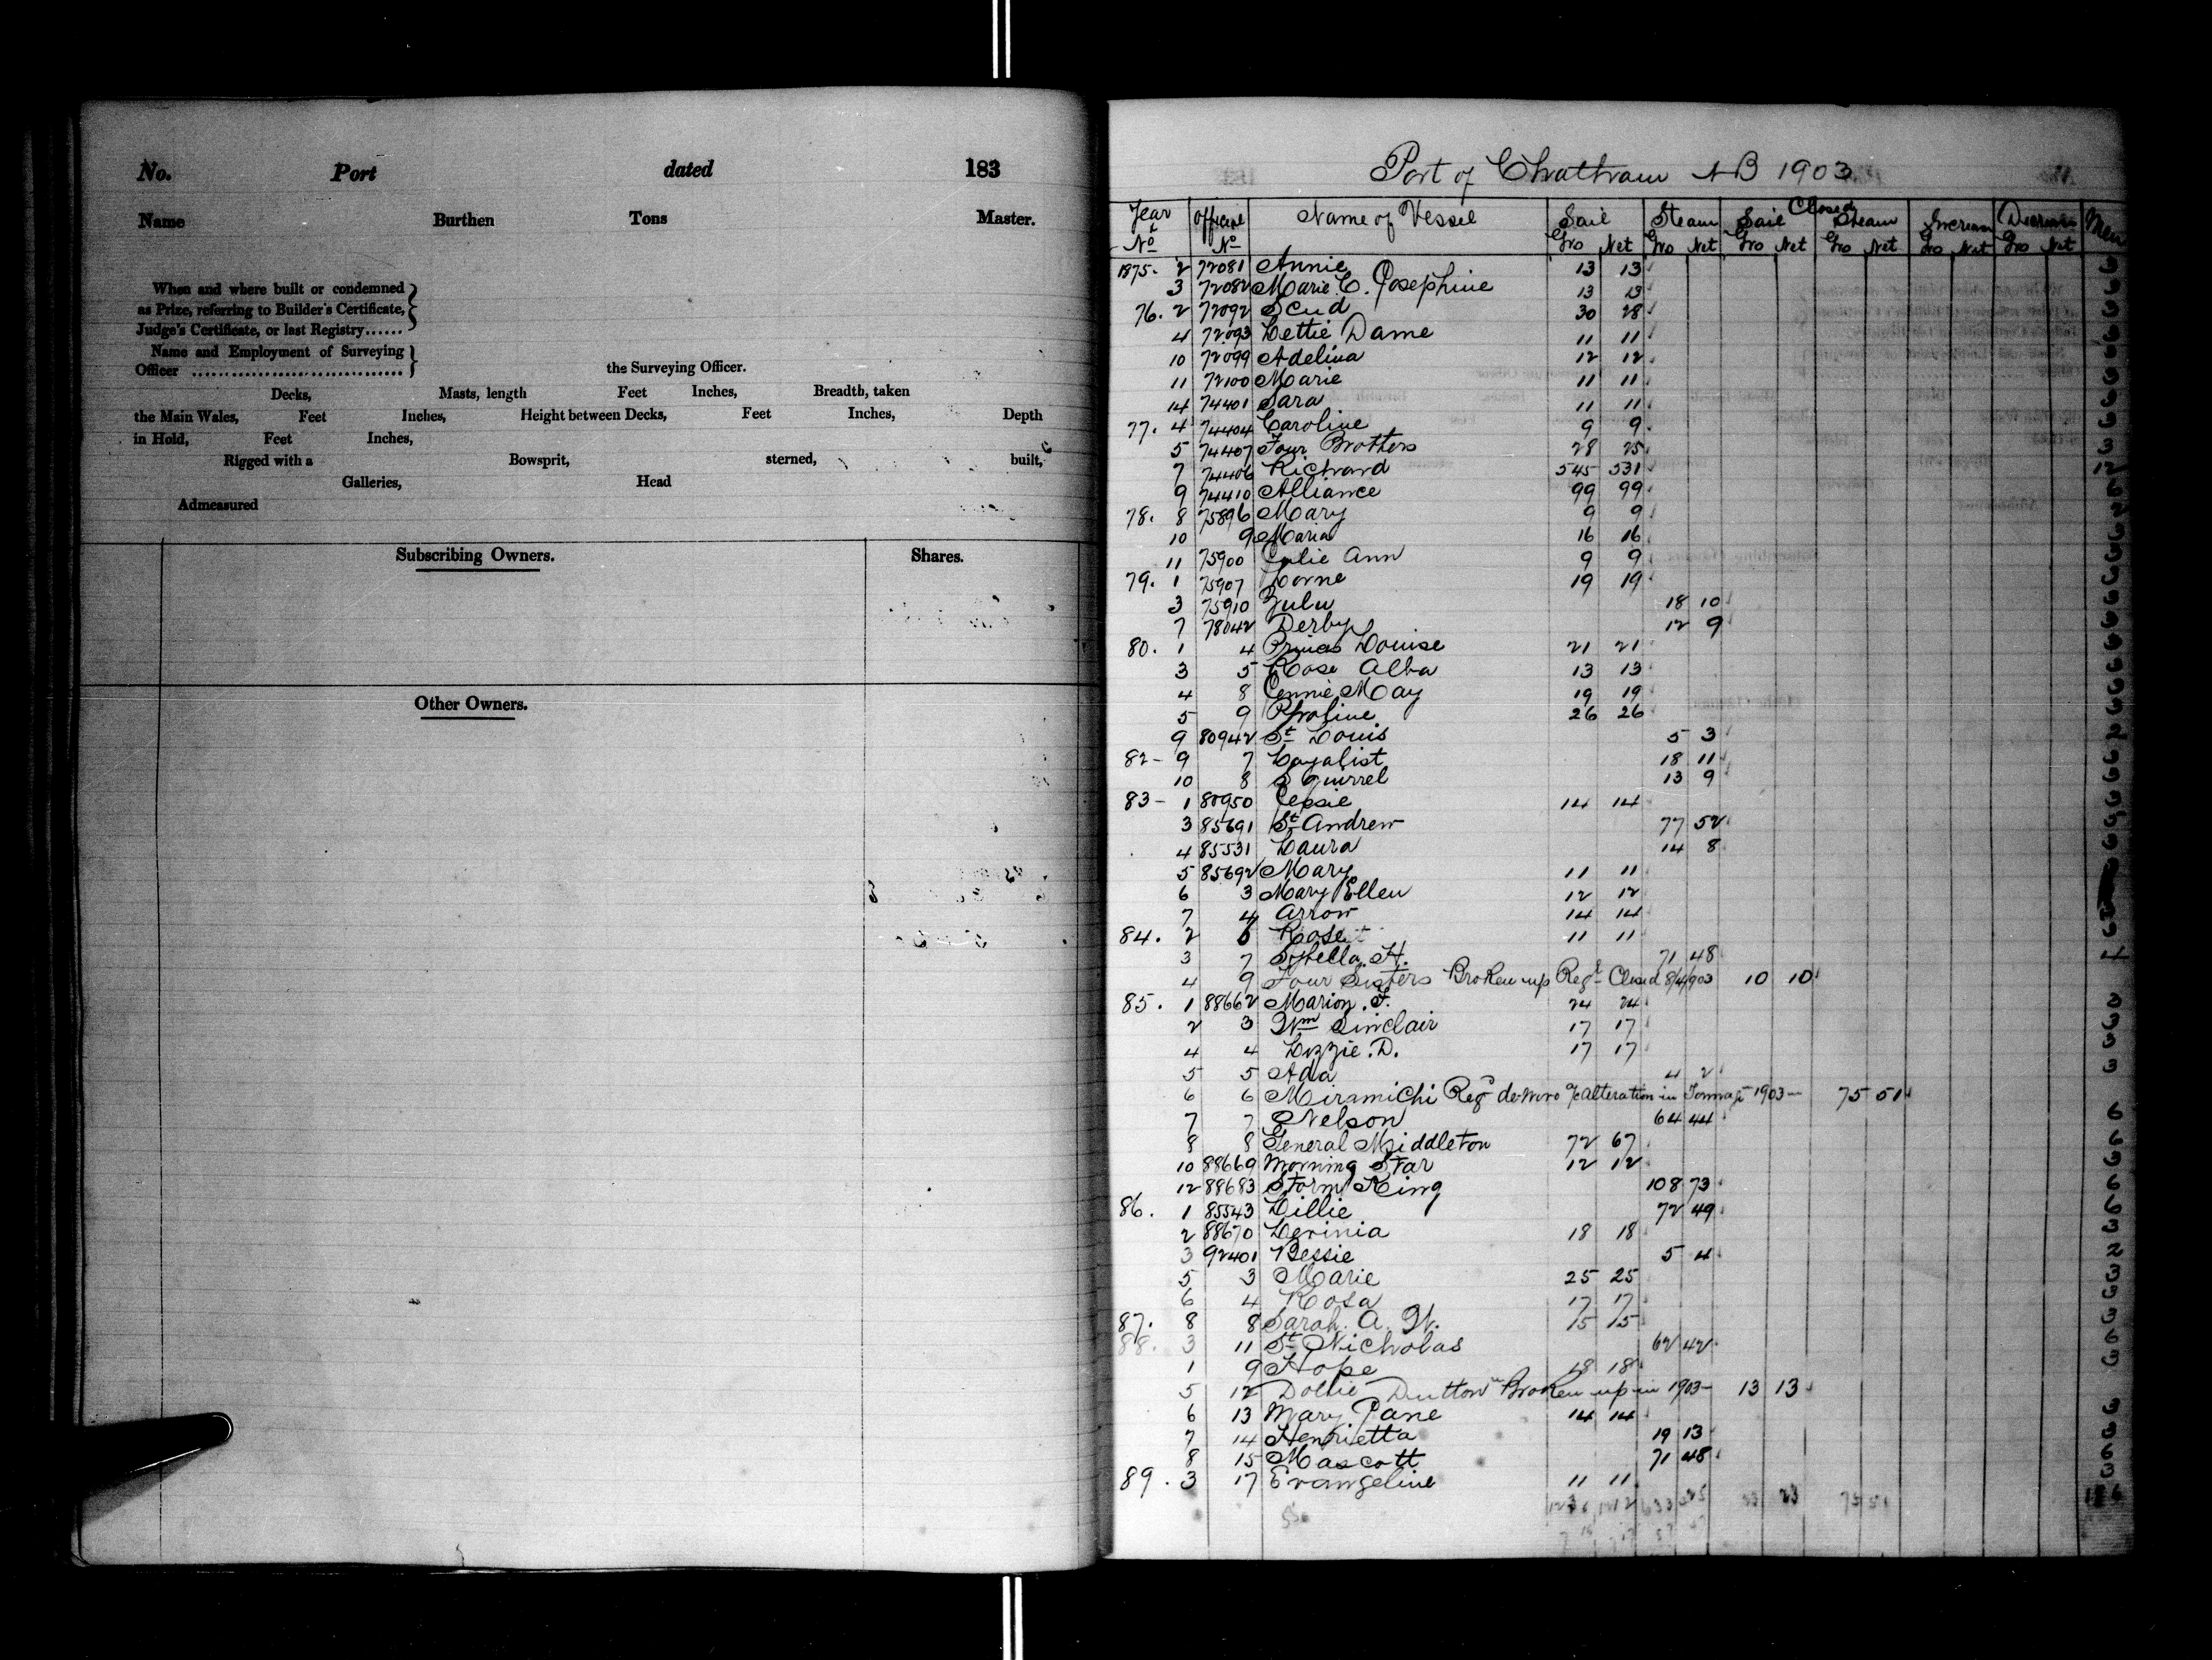 No. Port dated 183
Name Burthen Tons Master.
When and where built or condemned
as Prize, referring to Builder's Certificate,
Judge's Certificate, or last Registry......
Name and Employment of Surveying
Officer ................................ the Surveying Officer.
Decks, Masts, length Feet Inches, Breadth, taken
the Main Wales, Feet Inches, Height between Decks, Feet Inches, Depth
in Hold, Feet Inches,
Rigged with a Bowsprit, sterned, built,
Galleries, Head
Admeasured
Subscribing Owners. Shares.
Other Owners.
Port of Chatham NB 1903
Closed
Year & No Official No Name of Vessel Sail Steam Sail Steam Increase Decrease Men
Gro Net Gro Net Gro Net Gro Net Gro Net Gro Net
1875. 2 72081 Annie 13 13
3 72082 Marie C. Josephine 13 13
76. 2 72092 Scud 30 28
4 72093 Lettie Dame 11 11
10 72099 Adelina 12 12
11 72100 Marie 11 11
14 74401 Sara 11 11
77. 4 74404 Caroline 9 9
5 74407 Four Brothers 28 25 3
7 74406 Richard 545 531 12
9 74410 Alliance 99 99
78. 8 75896 Mary 9 9
10 9 Maria 16 16
11 75900 Julie Ann 9 9
79. 1 75907 Lorne 19 19
3 75910 Zulu 18 10
7 78042 Derby 12 9
80. 1 4 Princes Louise 21 21
3 5 Rose Alba 13 13
4 8 Jennie May 19 19
5 9 26 26
9 80942 St Louis 5 3
82- 9 7 Loyalist 18 11
10 8 Squirrel 13 9
83- 1 80950 Jessie 14 14
3 85691 St Andrew 77 52
4 85531 Laura 14 8
5 85692 Mary 11 11
6 3 Mary Ellen 12 12
7 4 Arrow 14 14
84. 2 6 Rose 11 11
3 7 Sybella. H. 71 48
4 9 Four Sisters Broken up Regt Closed 8/4/903 10 10
85. 1 88662 Marion. F. 24 24 3
2 3 Wm Sinclair 17 17 3
4 4 Lizzie. D. 17 17 3
5 5 Ada 4 2 3
6 6 Miramichi Regd de-novo alteration in Tonnage 1903- 75 51
7 7 Nelson 64 44 6
8 8 General Middleton 72 67 6
10 88669 Morning Star 12 12 3
12 88683 Storm King 108 73 6
86. 1 85543 Lillie 72 49 6
2 88670 Levinia 18 18 3
3 92401 Bessie 5 4 2
5 3 Marie 25 25 3
6 4 Rosa 17 17 3
87. 8 8 Sarah. A. W. 15 15 3
88. 3 11 St Nicholas 62 42 6
1 9 Hope 18 18 3
5 12 Dollie Dutton Broken up in 1903- 13 13
6 13 Mary Jane 14 14 3
7 14 Henrietta 19 13 3
8 15 Mascott 71 48 6
89. 3 17 Evangeline 11 11 3
23 23 75 51